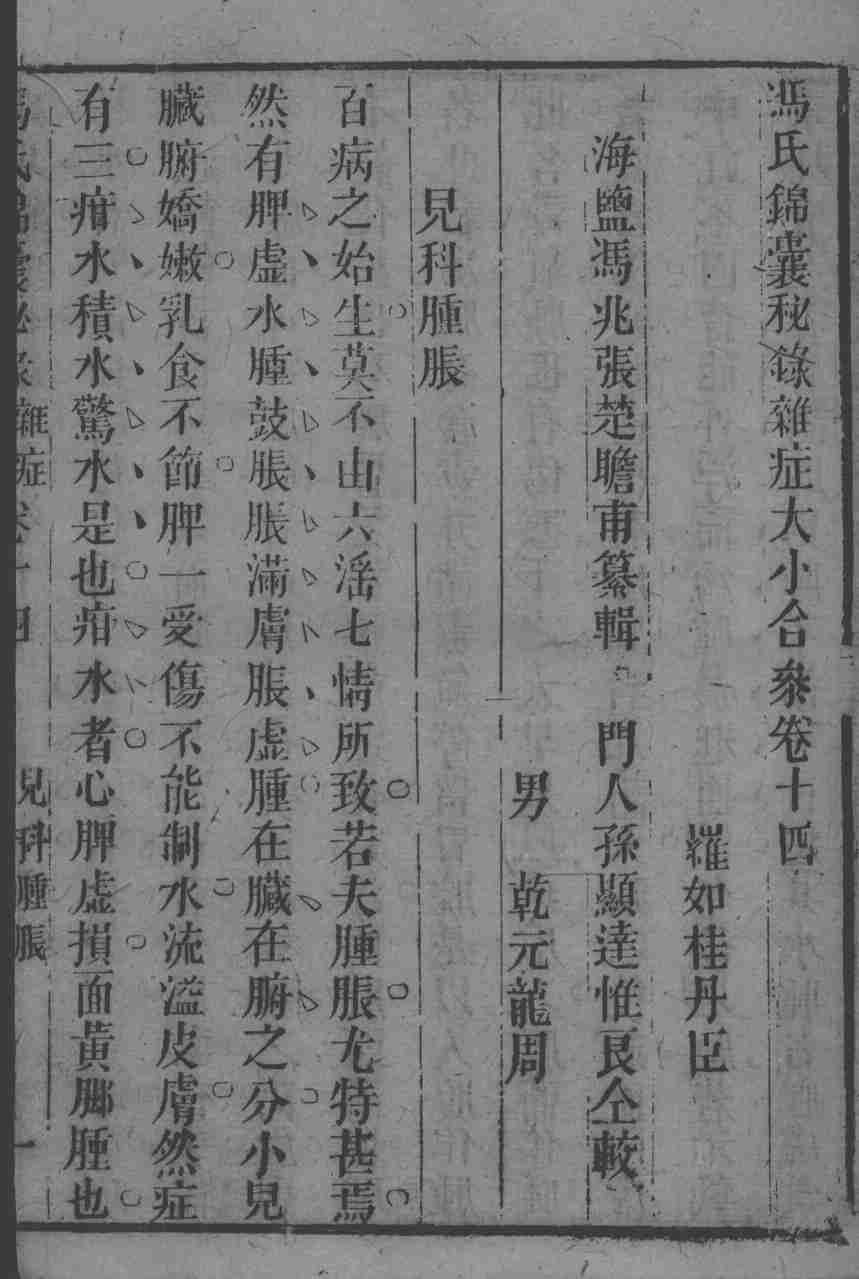 馮氏錦囊秘錄雜症大小合叅卷十四
羅如桂丹臣
海鹽馮兆張楚瞻甫纂輯 門人孫顯達惟良仝較
男 乾元龍周
兒科腫脹
百病之始生莫不由六滛七情所致若夫腫脹尤特甚焉
然有脾虛水腫鼓脹脹滿膚脹虛腫在臟在腑之分小兒
臟腑嬌嫩乳食不節脾一受傷不能制水流溢皮膚然症
有三疳水積水驚水是也疳水者心脾虛損面黃脚腫也
馮氏錦囊秘錄雜症卷十四 兒科腫脹 一